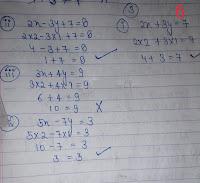 ③
① 2x + 3y = 7
2×2 + 3×1 = 7
4 + 3 = 7 ✓
ⅱ 2x - 3y + 7 = 8
2×2 - 3×1 + 7 = 8
4 - 3 + 7 = 8
1 + 7 = 8 ✓
ⅲ 3x + 4y = 9
3×2 + 4×1 = 9
6 + 4 = 9
10 = 9 X
5x - 7y = 3
5×2 - 7×1 = 3
10 - 7 = 3
3 = 3 ✓